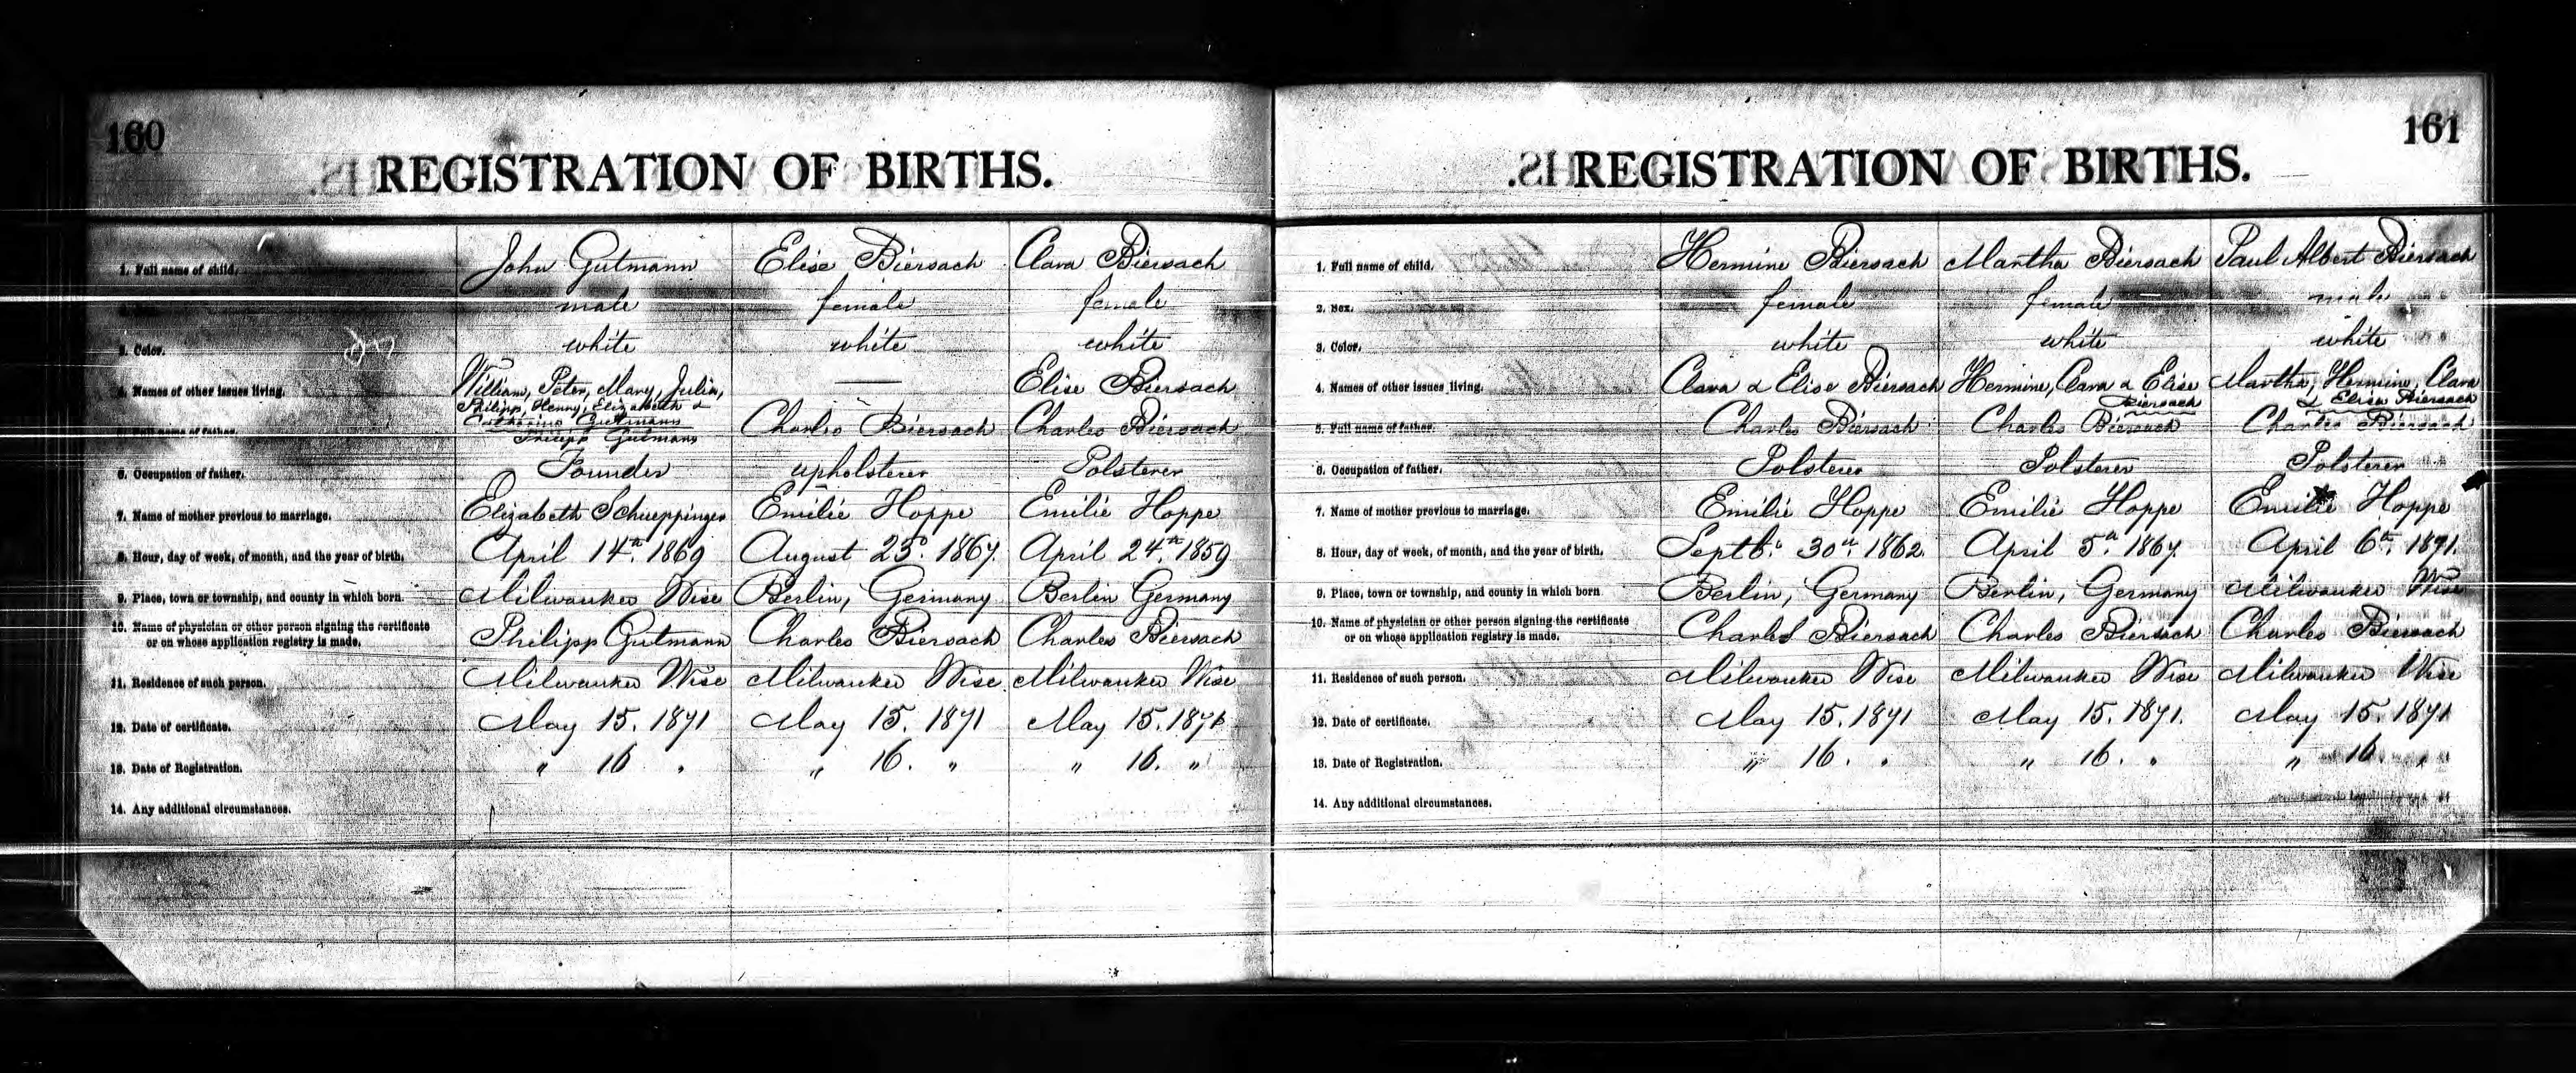 160
REGISTRATION OF BIRTHS.
1. Full name of child. John Gutmann Elise Biersach Clara Biersach
male female female
3. Color. white white white
4. Names of other issues living. William, Peter, Mary, Julia, — Elise Biersach
Philipp, Henry, Elizabeth &
Catharina Gutmann
Full name of father. Philipp Gutmann Charles Biersach Charles Biersach
6. Occupation of father. Founder upholsterer Polsterer
7. Name of mother previous to marriage. Elizabeth Emilie Hoppe Emilie Hoppe
8. Hour, day of week, of month, and the year of birth. April 14th 1869 August 1867. April 24th 1859
9. Place, town or township, and county in which born. Milwaukee Wisc Berlin, Germany Berlin Germany
10. Name of physician or other person signing the certificate
or on whose application registry is made. Philipp Gutmann Charles Biersach Charles Biersach
11. Residence of such person. Milwaukee Wisc Milwaukee Wisc. Milwaukee Wisc
12. Date of certificate. May 15. 1871 May 15. 1871 May 15. 1871
13. Date of Registration. " 16 " " 16. " " 16. "
14. Any additional circumstances.
161
REGISTRATION OF BIRTHS.
1. Full name of child. Hermine Biersach Martha Biersach Paul Albert Biersach
2. Sex. female female male
3. Color. white white white
4. Names of other issues living. Clara & Elise Biersach Hermine, Clara & Elise Martha, Hermine, Clara
Biersach & Elise Biersach
5. Full name of father. Charles Biersach Charles Biersach Charles Biersach
6. Occupation of father. Polsterer Polsterer Polsterer
7. Name of mother previous to marriage. Emilie Hoppe Emilie Hoppe Emilie Hoppe
8. Hour, day of week, of month, and the year of birth. Septb. 30th 1862. April 5th 1867. April 6th 1871.
9. Place, town or township, and county in which born. Berlin, Germany Berlin, Germany Milwaukee Wisc
10. Name of physician or other person signing the certificate
or on whose application registry is made. Charles Biersach Charles Biersach Charles Biersach
11. Residence of such person. Milwaukee Wisc Milwaukee Wisc Milwaukee Wisc
12. Date of certificate. May 15. 1871 May 15. 1871. May 15. 1871
13. Date of Registration. " 16. " " 16. " " 16. "
14. Any additional circumstances.